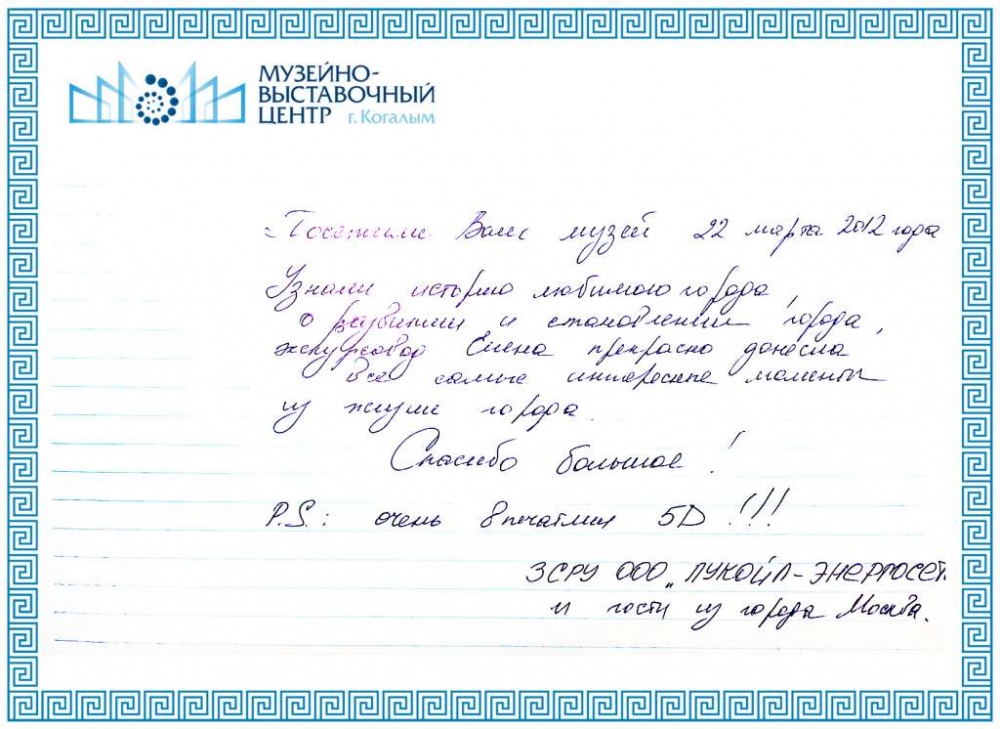 МУЗЕЙНО-
ВЫСТАВОЧНЫЙ
ЦЕНТР г. Когалым
Посетили Ваш музей 22 марта 2012 года
Узнали историю любимого города,
о развитии и становлении города,
экскурсовод Елена прекрасно донесла
все самые интересные моменты
из жизни города.
Спасибо большое!
P.S.: очень впечатлил 5D !!!
ЗСРУ ООО „ЛУКОЙЛ-ЭНЕРГОСЕТИ
и гости из города Москва.